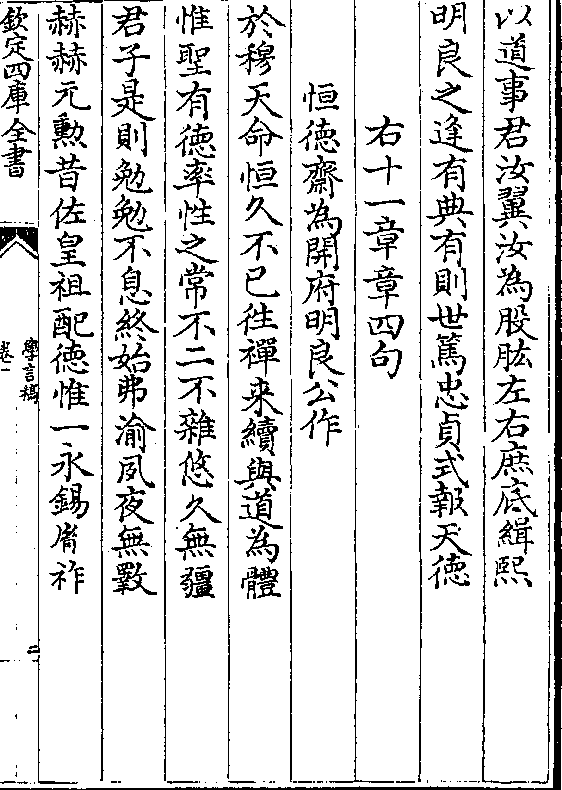 以道事君汝翼汝為股肱左右庶底緝熙
明良之逢有典有則世篤忠貞式報天徳
右十一章章四句
恒徳齋為開府明良公作
於穆天命恒久不已徃禪来續與道為體
惟聖有徳率性之常不二不雜悠久無疆
君子是則勉勉不息終始弗渝夙夜無斁
赫赫元勲昔佐皇祖配徳惟一永錫胄祚
欽定四庫全書
學言稿
卷一
二